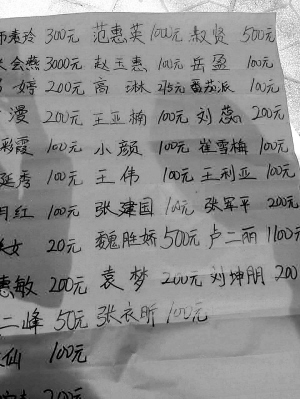 素玲 300元 范惠英 1000元 叔贤 500元
会燕 3000元 赵玉惠 100元 岳盈 100元
婷 200元 高琳 215元 番茄派 100元
漫 200元 王亚楠 100元 刘蕊 200元
彩霞 100元 小颜 100元 崔雪梅 100元
延秀 100元 王伟 100元 王利亚 100元
月红 100元 张建国 元 张军平 200元
女 20元 魏胜娇 500元 卢二丽 1100元
惠敏 200元 袁梦 200元 刘坤朋 200
二峰 50元 张衣昕 100元
仙 100元
200元